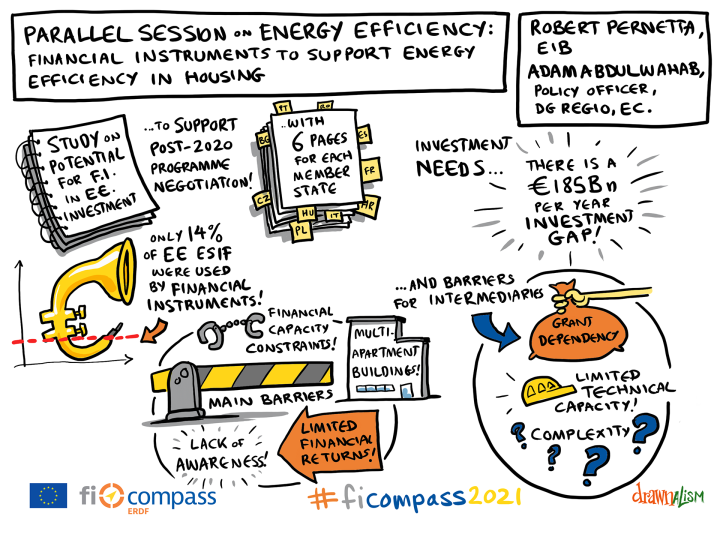 PARALLEL SESSION ON ENERGY EFFICIENCY:
FINANCIAL INSTRUMENTS TO SUPPORT ENERGY
EFFICIENCY IN HOUSING
ROBERT PERNETTA,
EIB
ADAM ABDULWAHAB,
POLICY OFFICER,
DG REGIO, EC.
STUDY ON
POTENTIAL
FOR F.I.
IN EE.
INVESTMENT
...TO SUPPORT
POST-2020
PROGRAMME
NEGOTIATION!
...WITH
6 PAGES
FOR EACH
MEMBER
STATE
PT
RO
BG
ES
FR
CZ
HR
HU
IT
PL
INVESTMENT
NEEDS...
THERE IS A
€185Bn
PER YEAR
INVESTMENT
GAP!
ONLY 14%
OF EE ESIF
WERE USED
BY FINANCIAL
INSTRUMENTS!
FINANCIAL
CAPACITY
CONSTRAINTS!
MULTI-
APARTMENT
BUILDINGS!
MAIN BARRIERS
LACK OF
AWARENESS!
LIMITED
FINANCIAL
RETURNS!
...AND BARRIERS
FOR INTERMEDIARIES
GRANT
DEPENDENCY
LIMITED
TECHNICAL
CAPACITY!
COMPLEXITY
? ? ? ?
fi compass
ERDF
#ficompass2021
drawnalism